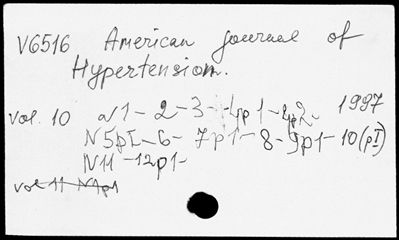 V6516 American journal of
Hypertension.
vol. 10 N1-2-3-4p1-4p2- 1997
N5pI-6-7p1-8-9p1-10(pI)
N11-12p1-
vol 11 N1p1